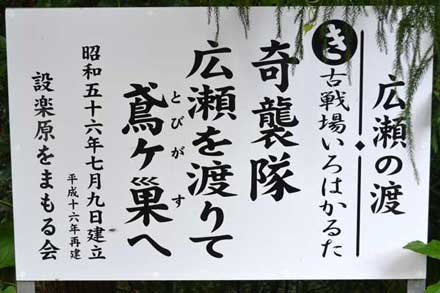 広瀬の渡
き 古戦場いろはかるた
奇襲隊
広瀬を渡りて
鳶ヶ巣へ
とびがす
昭和五十六年七月九日建立
平成十六年再建
設楽原をまもる会